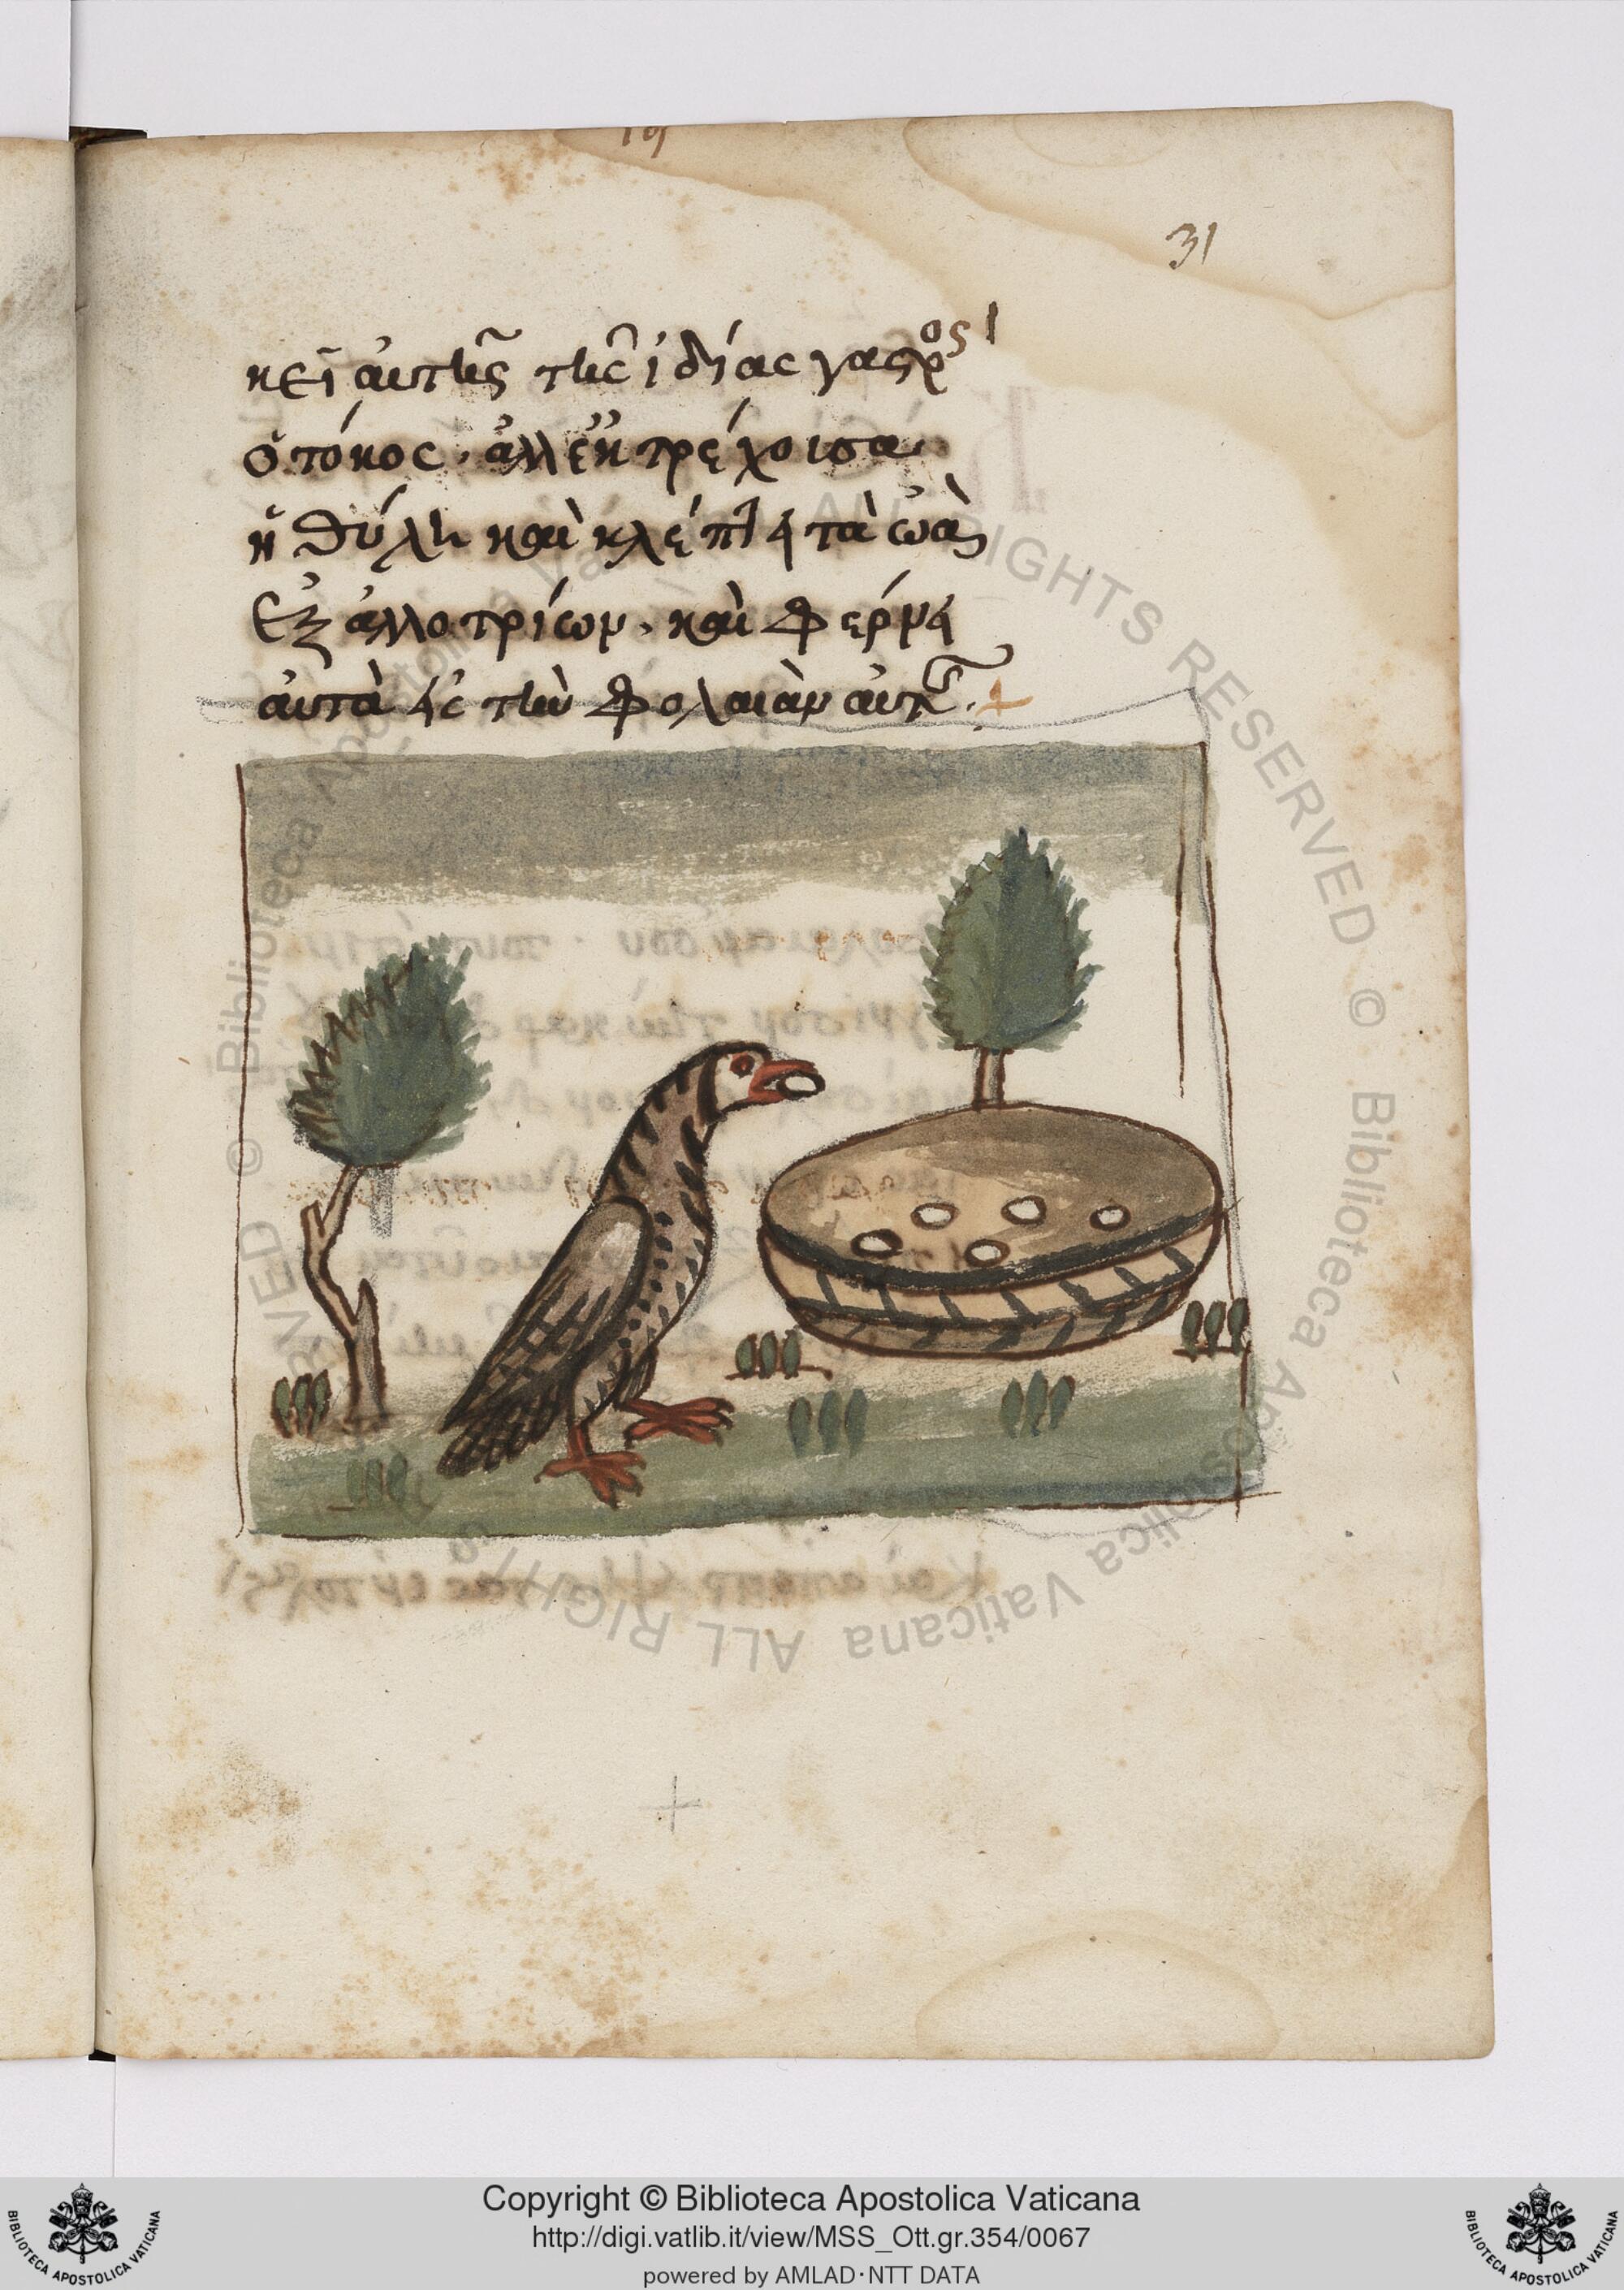 31
κεῖ αὐτῆς τῆς ἰδίας γαστρός
ὁ τόκος. ἀλλ' ἐκτρέχοισα
ἡ θύλη καὶ κλέπτει τὰ ὠὰ
ἐξ ἀλλοτρίων. καὶ φέρνει
αὐτὰ εἰς τὴν φολαιὰν αὐτῆς.
Copyright © Biblioteca Apostolica Vaticana
http://digi.vatlib.it/view/MSS_Ott.gr.354/0067
powered by AMLAD·NTT DATA
BIBLIOTECA APOSTOLICA VATICANA
BIBLIOTECA APOSTOLICA VATICANA
© Biblioteca Apostolica Vaticana ALL RIGHTS RESERVED © Biblioteca Apostolica Vaticana ALL RIGHTS RESERVED